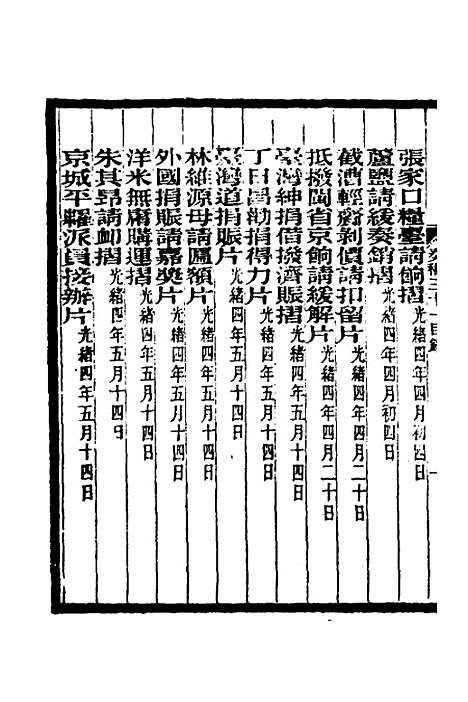 張家口糧臺請餉摺 光緒四年四月初四日
蘆鹽請緩奏銷摺 光緒四年四月初四日
截漕輕齎剝價請扣留片 光緒四年四月二十日
抵撥閩省京餉請緩解片 光緒四年四月二十日
臺灣紳捐借撥濟賑摺 光緒四年五月十四日
丁日昌勸捐得力片 光緒四年五月十四日
臺灣道捐賑片 光緒四年五月十四日
林維源母請匾額片 光緒四年五月十四日
外國捐賑請嘉獎片 光緒四年五月十四日
洋米無庸購運摺 光緒四年五月十四日
朱其昂請卹摺 光緒四年五月十四日
京城平糶派員接辦片 光緒四年五月十四日